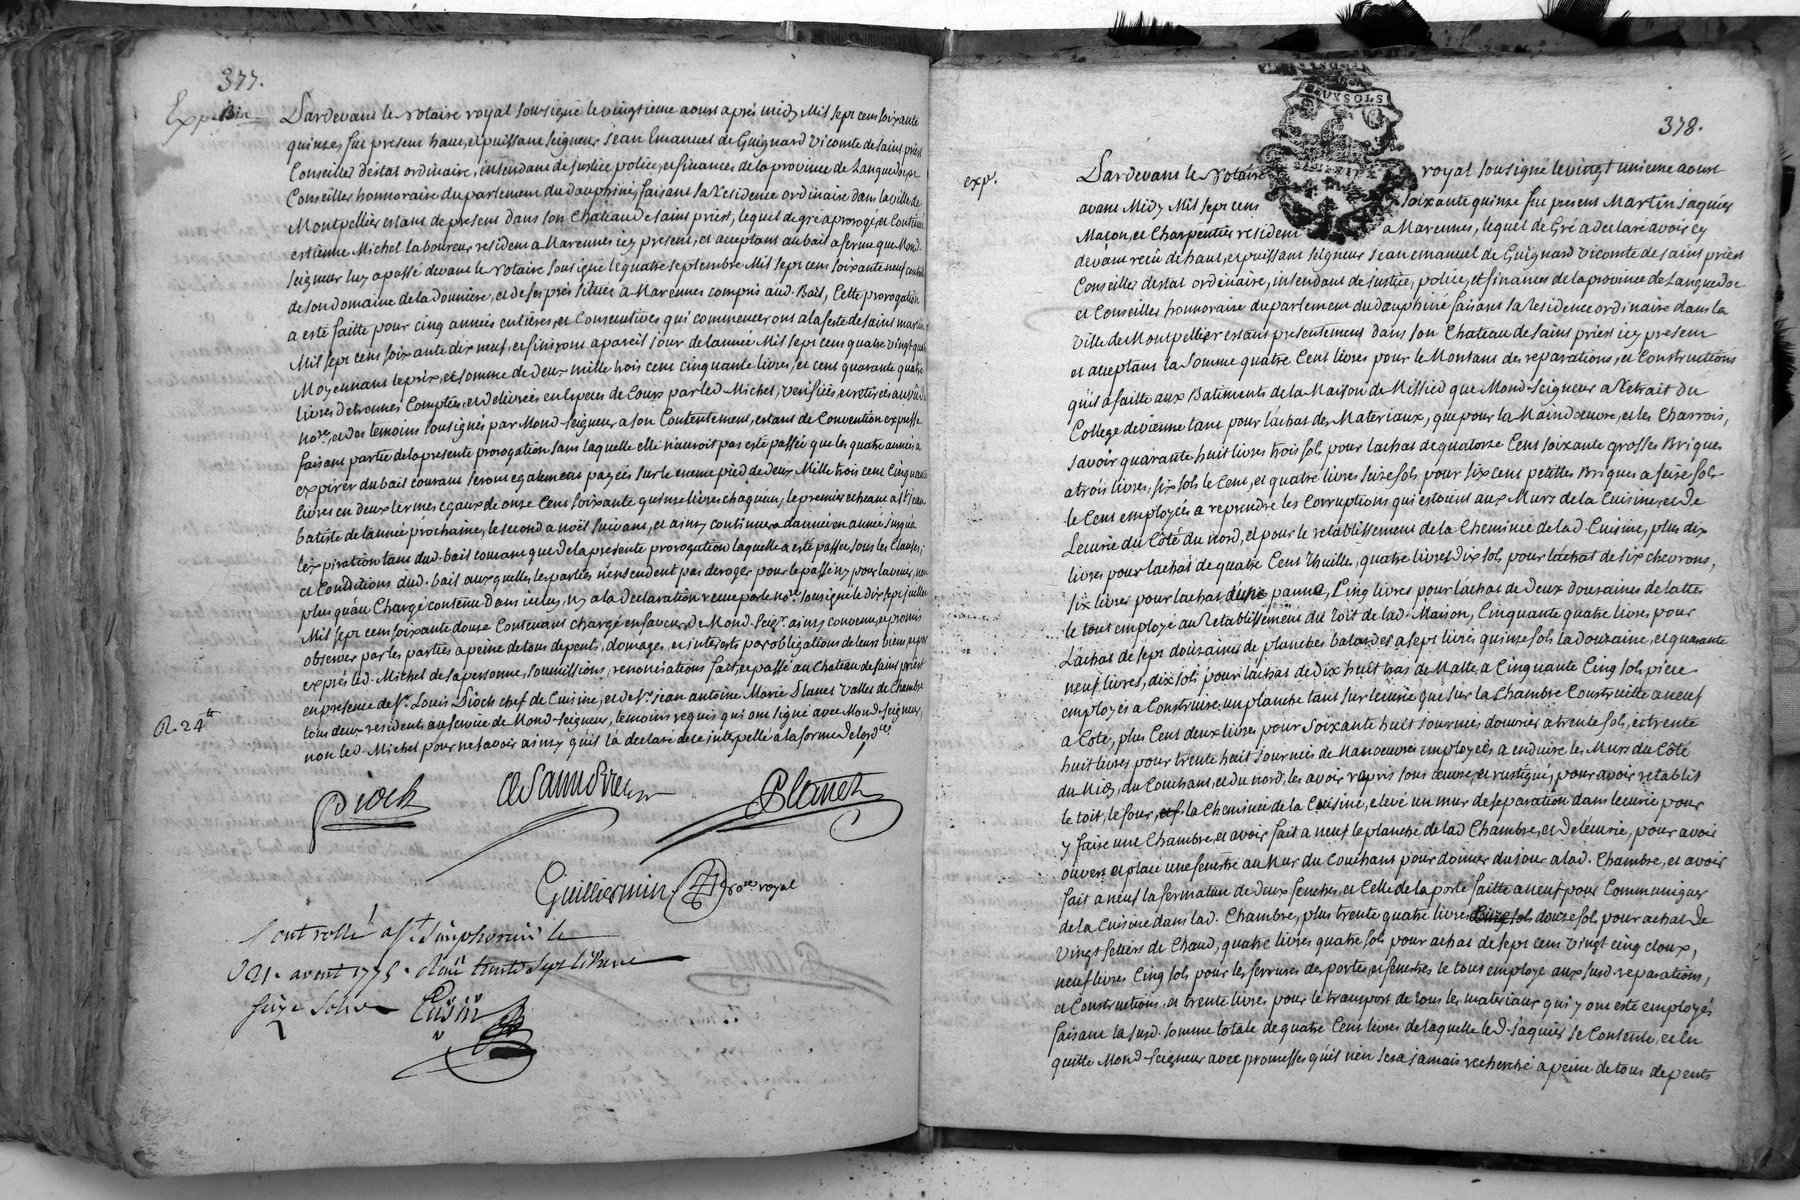 377.
Expn. Bin
Pardevant le Notaire royal sousigné le vingtieme aoust aprés midy Mil sept cent soixante
quinze, fut present haut, et puissant seigneur jean Emanuel de Guignard Vicomte de saint priest
Conseiller d'etat ordinaire, intendant de justice police, et finances de la province de Languedoc et
Conseiller honnoraire du parlement du dauphiné, faisant sa Residence ordinaire dans la ville de
Montpellier estant de present dans son Chateau de saint priest, lequel de gré a prorogé, et Continué
a estienne Michel laboureur resident a Marennes icy present, et acceptant au bail a ferme que Mond.
seigneur luy a passé devant le Notaire sousigné le quatre septembre Mil sept cent soixante neuf
de son domaine de la donniere, et de ses prés situés a Marennes compris aud. Bail, Cette prorogation
a esté faitte pour cinq années entières, et Consecutives qui commenceront a la feste de saint martin
Mil sept cent soixante dix neuf, et finiront a pareil jour de l'année Mil sept cent quatre vingt quatre
Moyennant le prix, et somme de deux mille trois cent cinquante livres, et cent quarante quatre
livres d'etrennes Comptés, et delivrées en Especes de Cours par led Michel, verifiées, et retirées au vû du
nore, et des temoins sousignés par Mond seigneur a son Contentement, estant de Convention expresse
faisant partie de la presente prorogation sans laquelle elle n'auroit pas esté passée que les quatre années a
expirer du bail courant seront egalement payées sur le meme pied de deux Mille trois cent Cinquante
livres en deux termes egaux de onze Cent soixante quinze livres chaquun, le premier echeant a st jean
batiste de l'année prochaine, le second a noël suivant, et ainsy continuer d'année en année jusqua
l'expiration tant dud. bail courant que de la presente prorogation laquelle a esté passée sous les Clauses,
et Conditions dud. bail auxquelles les parties n'entendent pas deroger pour le passé ny pour l'avenir, non
plus qu'au Chargé contenu dans icelluy, ny a la declaration receue par le nore sousigné le dix sept juillet
Mil sept cent soixante douze Contenant chargé en faveur de Mond. Seigr. ainsy convenu, et promis
observer par les parties a peine de tous depents, domages, et interets par obligations de leurs biens, et par
exprés led. Michel de sa personne, soumissions, renonciations fait, et passé au Chateau de saint priest
en presence de sr. Louis Dioch chef de Cuisine, et de sr. jean antoine Marie Planet Vallet de Chambre
tous deux resident au service de Mond-seigneur, temoins requis qui ont signé avec Mond-seigneur,
non led. Michel pour ne savoir ainsy qu'il l'a declaré de ce interpellé a la forme de lordce.
R. 24tt
Dioch
de Saint Priest
Planet
Guillermin nore royal
Controllé a St. Simphorien le
21. aoust 1775. Reçu trente sept livres
seize sols
378.
expé.
Pardevant le Notaire royal sousigné le vingt unieme aoust
avant Midy Mil sept cent soixante quinze fut present Martin jaquier
Mason, et Charpentier resident a Marennes, lequel de Gré a declaré avoir cy
devant reçu de haut, et puissant seigneur jean emanuel de Guignard vicomte de saint priest
Conseiller d'etat ordinaire, intendant de justice, police, et finances de la province de Languedoc
et Conseiller honnoraire du parlement du dauphiné faisant sa Residence ordinaire dans la
ville de Montpellier estant presentement dans son Chateau de saint priest icy present
et acceptant la somme quatre Cent livres pour le Montant des reparations, et Constructions
qu'il a faitte aux Batiments de la Maison de Missied que Mond-seigneur a Retrait du
College de vienne tant pour l'achat des Materiaux, que pour la Maindœuvre, et les Charrois,
savoir quarante huit livres trois sols pour lachat de quatorze Cent soixante grosses Briques
a trois livres, six sols le Cent, et quatre livres seize sols pour six cent petites Briques a seize sols
le Cent employées a reprendre les Corruptions qui estoient aux Murs de la Cuisine, et de
Lecurie du Côté du nord, et pour le retablissement de la Cheminée de lad. Cuisine, plus dix
livres pour lachat de quatre Cent Thuilles, quatre livres dix sols pour lachat de six chevrons,
six livres pour lachat d'une panne, Cinq livres pour l'achat de deux douzaines de lattes
le tout employé au Retablissement du Toit de lad. Maison, Cinquante quatre livres pour
L'achat de sept douzaines de planches balandes a sept livres quinze sols la douzaine, et quarante
neuf livres, dix sols pour lachat de dix huit tras de Malte a Cinquante Cinq sols piece
employés a Construire, un planche tant sur lecurie que sur la Chambre Construitte a neuf
a Coté, plus Cent deux livres pour soixante huit journées d'ouvrier a trente sols, et trente
huit livres pour trente huit journées de Manoeuvres employées a enduire les Murs du Côté
du Midy, du Couchant, et du nord, les avoir repris sous œuvre, et rustiqués, pour avoir retabli
le toit, le four, et la Cheminée de la Cuisine, elevé un mur de separation dans lecurie pour
y faire une Chambre, et avoir fait a neuf le planché de lad Chambre, et de lecurie, pour avoir
ouvert et placé une fenetre au Mur du Couchant pour donner du jour a lad. Chambre, et avoir
fait a neuf la fermature de deux fenetres, et Celle de la porte faitte a neuf pour Communiquer
de la Cuisine dans lad. Chambre, plus trente quatre livres douze sols pour achat de
vingt setiers de Chaud, quatre livres quatre sols pour achat de sept cent vingt cinq cloux,
neuf livres Cinq sols pour les ferrures des portes, et fenetres le tout employé aux susd-reparations,
et Constructions, et trente livres pour le transport de tous les materiaux qui y ont esté employés
faisant la susd. somme totale de quatre Cent livres de laquelle led. jaquier se Contente, et en
quitte Mond-seigneur avec promesses qu'il n'en sera jamais recherché a peine de tous depents